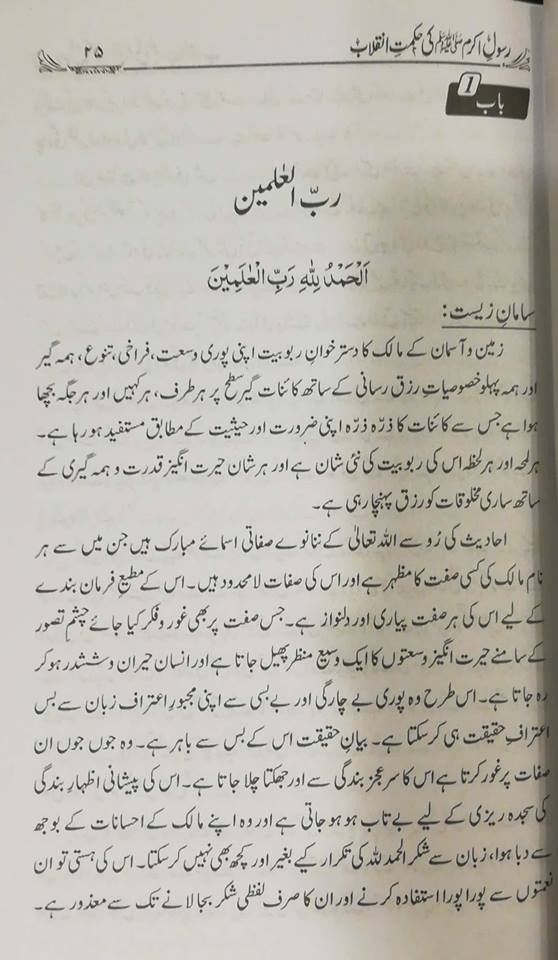 رسولِ اکرم ﷺ کی حکمتِ انقلاب
۲۵
باب 1
ربّ العٰلمین
اَلْحَمْدُ لِلّٰهِ رَبِّ الْعٰلَمِیْنَ
سامانِ زیست:
زمین و آسمان کے مالک کا دسترخوانِ ربوبیت اپنی پوری وسعت، فراخی، تنوع، ہمہ گیر
اور ہمہ پہلو خصوصیاتِ رزق رسانی کے ساتھ کائنات گیر سطح پر ہر طرف، ہر کہیں اور ہر جگہ بچھا
ہوا ہے جس سے کائنات کا ذرّہ ذرّہ اپنی ضرورت اور حیثیت کے مطابق مستفید ہو رہا ہے۔
ہر لمحہ اور ہر لحظہ اس کی ربوبیت کی نئی شان ہے اور ہر شان حیرت انگیز قدرت و ہمہ گیری کے
ساتھ ساری مخلوقات کو رزق پہنچا رہی ہے۔
احادیث کی رُو سے اللہ تعالیٰ کے ننانوے صفاتی اسمائے مبارک ہیں جن میں سے ہر
نام مالک کی کسی صفت کا مظہر ہے اور اس کی صفات لامحدود ہیں۔ اس کے مطیعِ فرمان بندے
کے لیے اس کی ہر صفت پیاری اور دلنواز ہے۔ جس صفت پر بھی غور و فکر کیا جائے چشمِ تصور
کے سامنے حیرت انگیز وسعتوں کا ایک وسیع منظر پھیل جاتا ہے اور انسان حیران و ششدر ہو کر
رہ جاتا ہے۔ اس طرح وہ پوری بے چارگی اور بے بسی سے اپنی مجبورِ اعتراف زبان سے بس
اعترافِ حقیقت ہی کر سکتا ہے۔ بیانِ حقیقت اس کے بس سے باہر ہے۔ وہ جوں جوں ان
صفات پر غور کرتا ہے اس کا سر عجزِ بندگی سے اور جھکتا چلا جاتا ہے۔ اس کی پیشانی اظہارِ بندگی
کی سجدہ ریزی کے لیے بے تاب ہو ہو جاتی ہے اور وہ اپنے مالک کے احسانات کے بوجھ
سے دبا ہوا، زبان سے شکر الحمد للہ کی تکرار کیے بغیر اور کچھ بھی نہیں کر سکتا۔ اس کی ہستی تو ان
نعمتوں سے پورا پورا استفادہ کرنے اور ان کا صرف لفظی شکر بجا لانے تک سے معذور ہے۔